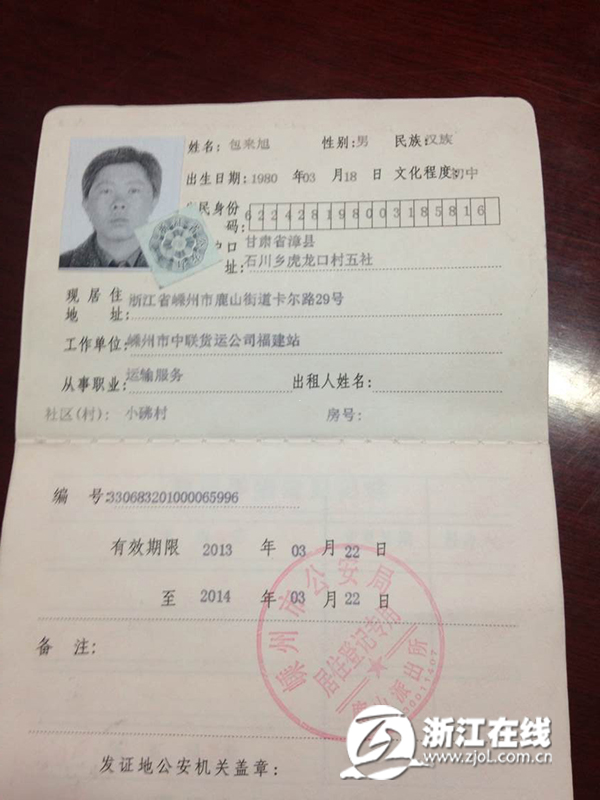 姓名: 包来旭 性别: 男 民族: 汉族
出生日期: 1980 年 03 月 18 日 文化程度: 初中
民身份
码: 622428198003185816
户口 甘肃省漳县
址: 石川乡虎龙口村五社
现居住 浙江省嵊州市鹿山街道卡尔路29号
地址:
工作单位: 嵊州市中联货运公司福建站
从事职业: 运输服务 出租人姓名:
社区(村): 小砩村 房号:
编号: 330683201000065996
有效期限 2013 年 03 月 22 日
至 2014 年 03 月 22 日
备注:
嵊州市公安局
居住登记专用
山派出所
发证地公安机关盖章:
浙江在线
www.zjol.com.cn